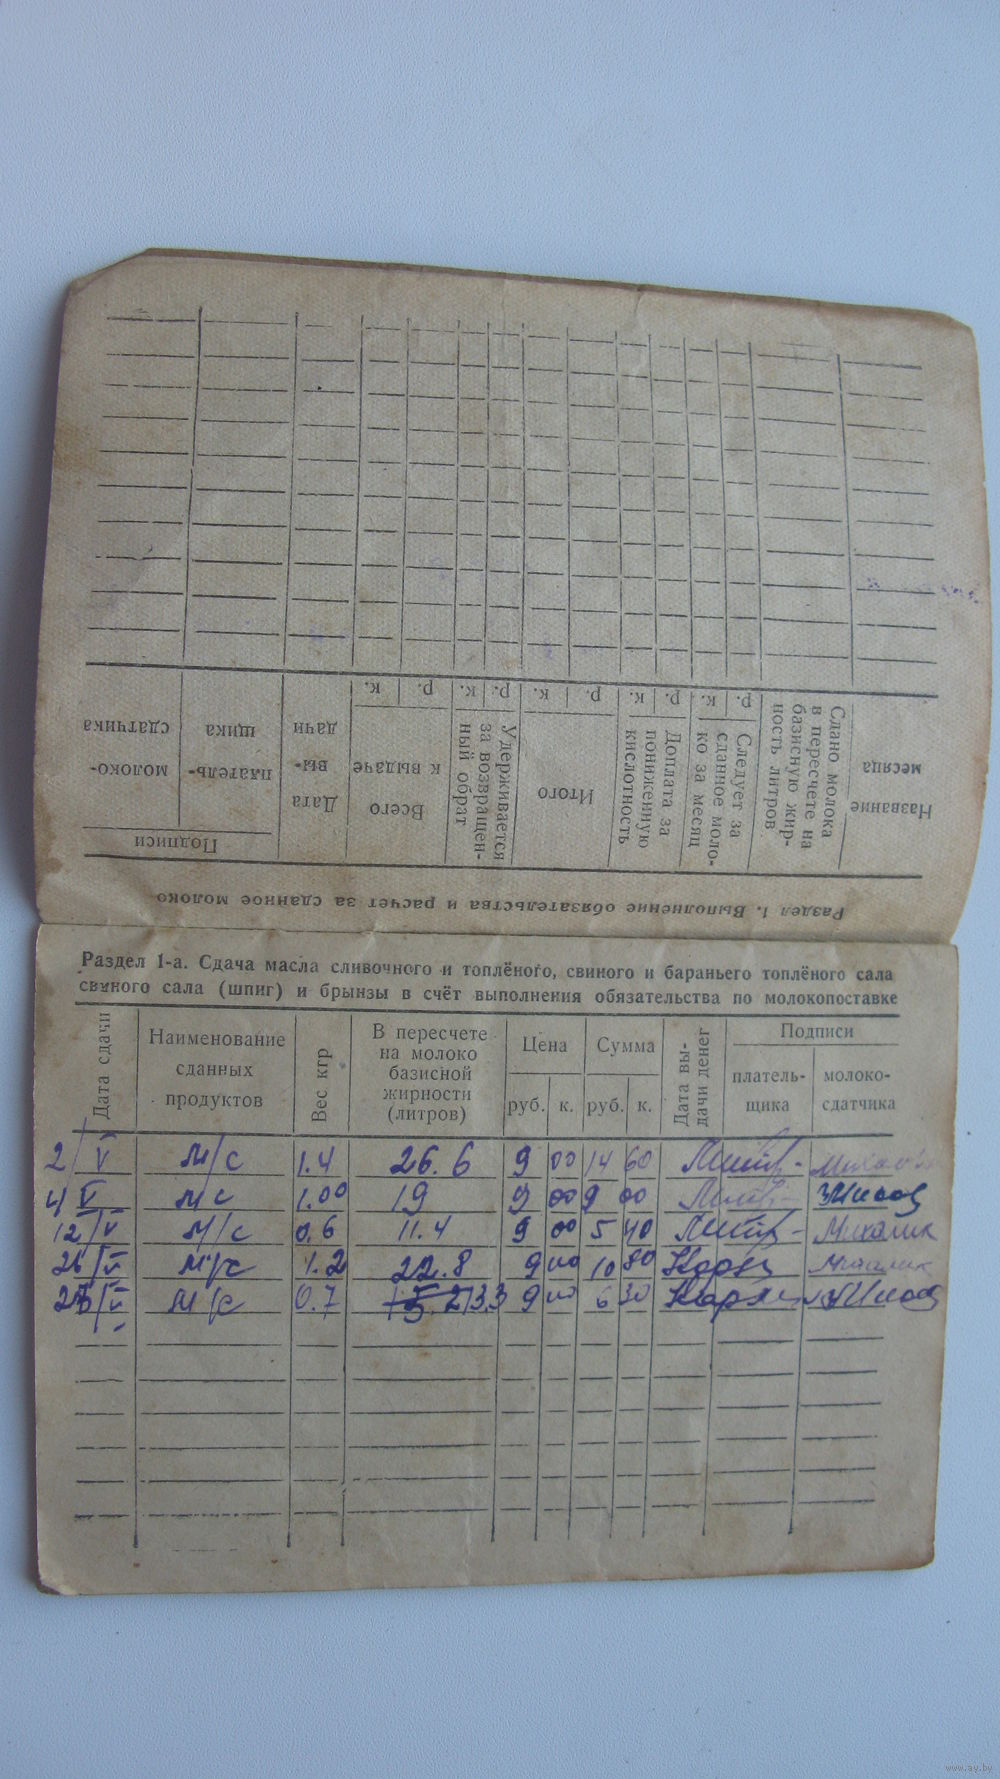 Раздел 1. Выполнение обязательства и расчет за сданное молоко
Название месяца
Сдано молока в пересчете на базисную жирность литров
Следует за сданное молоко за месяц
р. к.
Доплата за пониженную кислотность
р. к.
Итого
р. к.
Удерживается за возвращенный обрат
р. к.
Всего к выдаче
р. к.
Дата выдачи
Подписи
плательщика
молокосдатчика
Раздел 1-а. Сдача масла сливочного и топлёного, свиного и бараньего топлёного сала
свиного сала (шпиг) и брынзы в счёт выполнения обязательства по молокопоставке
Дата сдачи
Наименование
сданных
продуктов
Вес кгр
В пересчете
на молоко
базисной
жирности
(литров)
Цена
руб. к.
Сумма
руб. к.
Дата выдачи денег
Подписи
платель-
щика
молоко-
сдатчика
2/V м/с 1.4 26.6 9 00 14 60
4 V м/с 1.00 19 9 00 9 00
12/V м/с 0.6 11.4 9 00 5 40
26/V м/с 1.2 22.8 9 00 10 80
м/с 0.7 13 3 9 00 6 30
www.ay.by